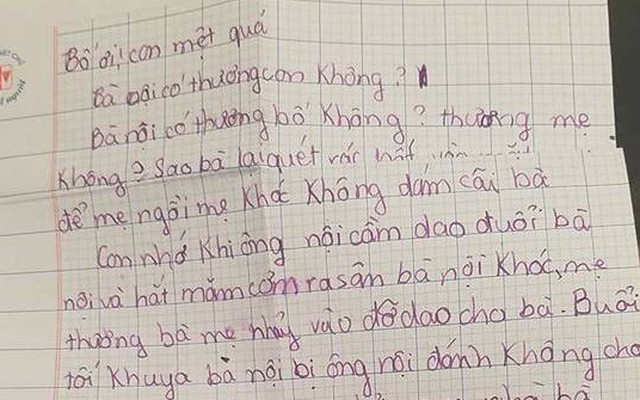 Bố ơi! con mệt quá
Bà nội có thương con không?
Bà nội có thương bố không? thương mẹ
không? Sao bà lại quét rác hất vào
để mẹ ngồi mẹ khóc không dám cãi bà
Con nhớ khi ông nội cầm dao đuổi bà
nội và hất mâm cơm ra sân bà nội khóc, mẹ
thương bà mẹ nhảy vào đỡ dao cho bà. Buổi
tối khuya bà nội bị ông nội đánh không cho
bà